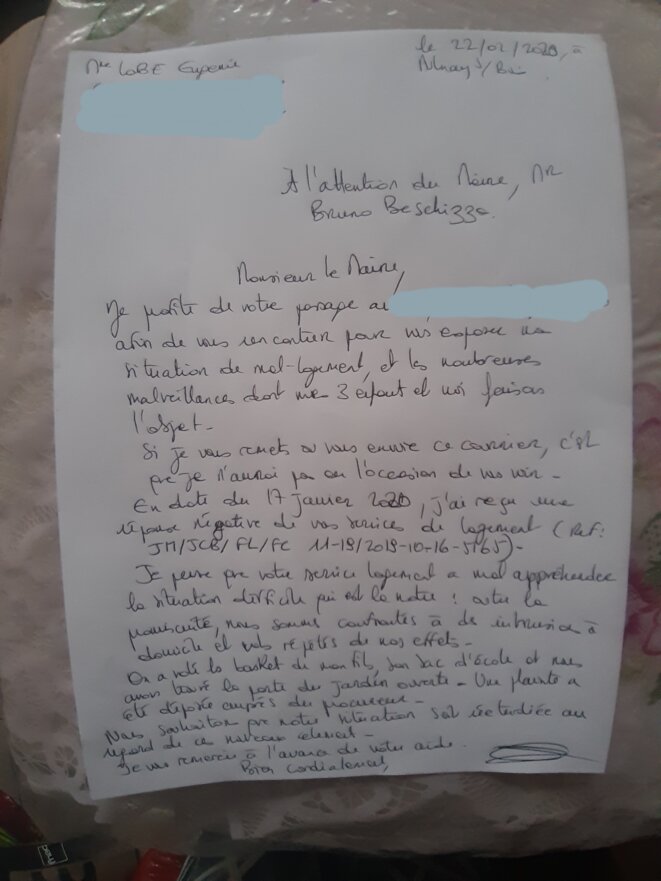 Mme LOBE Eugenie
le 22/02/2020, à
Aulnay s/Bois
À l'attention du Maire, Mr
Bruno Beschizza.
Monsieur le Maire,
Je profite de votre passage au
afin de vous rencontrer pour vous exposer ma
situation de mal-logement, et les nombreuses
malveillances dont mes 3 enfants et moi faisons
l'objet.
Si je vous remets ou vous envoie ce courrier, c'est
que je n'aurai pas eu l'occasion de vous voir.
En date du 17 janvier 2020, j'ai reçu une
réponse négative de vos services de logement (Ref:
JM/JCB/FL/FC 11-19/2019-10-16-5765).
Je pense que votre service logement a mal appréhendé
la situation difficile qui est la notre : outre la
promiscuité, nous sommes confrontés à des intrusions à
domicile et vols répétés de nos effets.
On a volé la basket de mon fils, son sac d'école et nous
avons trouvé la porte du jardin ouverte. Une plainte a
été déposée auprès du procureur.
Nous souhaitons que notre situation soit réétudiée au
regard de ce nouveau élément.
Je vous remercie à l'avance de votre aide.
Bien cordialement,